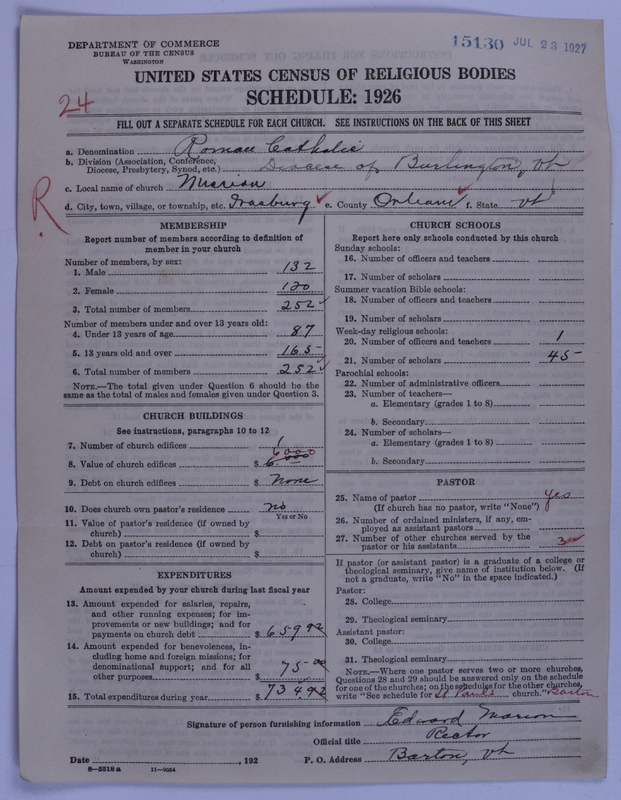 DEPARTMENT OF COMMERCE
BUREAU OF THE CENSUS
WASHINGTON
15130 JUL 23 1927
UNITED STATES CENSUS OF RELIGIOUS BODIES
SCHEDULE: 1926
24
FILL OUT A SEPARATE SCHEDULE FOR EACH CHURCH. SEE INSTRUCTIONS ON THE BACK OF THIS SHEET
a. Denomination Roman Catholic
b. Division (Association, Conference, Diocese, Presbytery, Synod, etc.) Diocese of Burlington, Vt
c. Local name of church Mission
R.
d. City, town, village, or township, etc. Irasburg e. County Orleans f. State Vt
MEMBERSHIP
Report number of members according to definition of
member in your church
Number of members, by sex:
1. Male 132
2. Female 120
3. Total number of members 252
Number of members under and over 13 years old:
4. Under 13 years of age 87
5. 13 years old and over 165
6. Total number of members 252
NOTE.—The total given under Question 6 should be the
same as the total of males and females given under Question 3.
CHURCH BUILDINGS
See instructions, paragraphs 10 to 12
7. Number of church edifices 1
10. 6000
8. Value of church edifices $ 6.000
9. Debt on church edifices $ None
10. Does church own pastor's residence? no
Yes or No
11. Value of pastor's residence (if owned by
church) $
12. Debt on pastor's residence (if owned by
church) $
EXPENDITURES
Amount expended by your church during last fiscal year
13. Amount expended for salaries, repairs,
and other running expenses; for im-
provements or new buildings; and for
payments on church debt $ 659.92
14. Amount expended for benevolences, in-
cluding home and foreign missions; for
denominational support; and for all
other purposes $ 75.00
15. Total expenditures during year $ 734.92
CHURCH SCHOOLS
Report here only schools conducted by this church
Sunday schools:
16. Number of officers and teachers
17. Number of scholars
Summer vacation Bible schools:
18. Number of officers and teachers
19. Number of scholars
Week-day religious schools:
20. Number of officers and teachers 1
21. Number of scholars 45
Parochial schools:
22. Number of administrative officers
23. Number of teachers—
a. Elementary (grades 1 to 8)
b. Secondary
24. Number of scholars—
a. Elementary (grades 1 to 8)
b. Secondary
PASTOR
25. Name of pastor yes
(If church has no pastor, write "None")
26. Number of ordained ministers, if any, em-
ployed as assistant pastors
27. Number of other churches served by the
pastor or his assistants 3
If pastor (or assistant pastor) is a graduate of a college or
theological seminary, give name of institution below. (If
not a graduate, write "No" in the space indicated.)
Pastor:
28. College
29. Theological seminary
Assistant pastor:
30. College
31. Theological seminary
NOTE.—Where one pastor serves two or more churches,
Questions 28 and 29 should be answered only on the schedule
for one of the churches; on the schedules for the other churches,
write "See schedule for St Pauls church." Barton
Signature of person furnishing information Edward Marion
Official title Rector
Date , 192 P. O. Address Barton, Vt
8—5518 a 11—9054